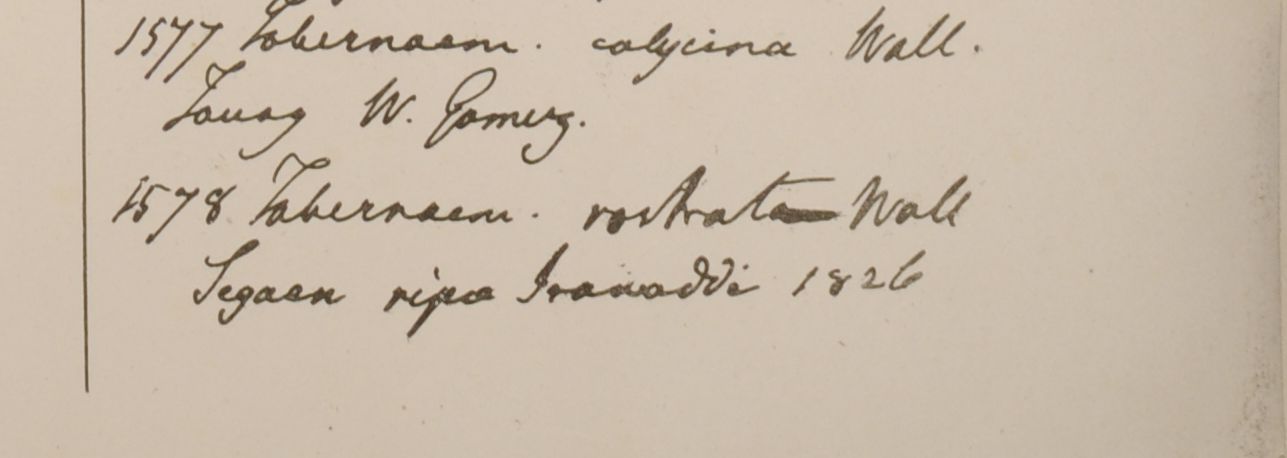 1577 Tabernaem. calycina Wall.
Tavoy W. Gomez.
1578 Tabernaem. rostrata Wall
Segaen ripa Irawaddi 1826